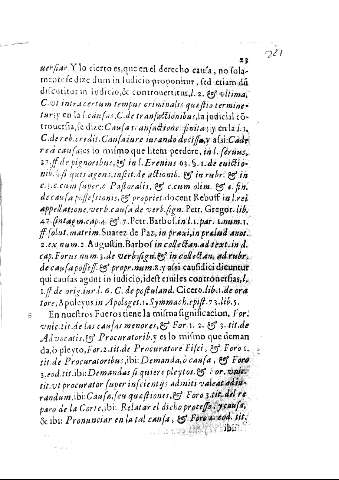 23
uersiae. Y lo cierto es, que en el derecho causa, no sola-
mente se dize dum in Iudicio proponitur, sed etiam dũ
discutitur in iudicio, & controuertitur, l. 2. & vltima,
C. vt intra certum tempus criminalis quæstio termine-
tur, y en la l. causas, C. de transactionibus, la judicial cõ
trouersia, se dize: Causa transactione finita; y en la l. 1.
C. de reb. credit. Causa iure iurando decisa, y assi: Cade
re à causa es lo mismo que litem perdere, in l. seruus,
27. ff. de pignoribus, & in l. Erenius 63. §. 1. de euictio-
nib. si quis agens, instit. de actionib. & in rubr. & in
c. 3. cum super. e Pastoralis, & c. cum olim. & c. fin.
de causa possessionis, & propriet. docent Rebuff. in l. rei
appellatione, verb. causa de verb. sign. Petr. Gregor. lib.
47. sintagm. cap. 4. & 7. Petr. Barbos. in l. 1. par. 1. num. 1.
ff. solut. matrim. Suarez de Paz, in praxi, in prelud. anot.
2. ex num. 2. Augustin. Barbos. in collectan. ad text. in d.
cap. Forus num. 3. de verb. sign. & in collectan. ad rubr.
de causa poss. & propr. num. 2. y assi causidici dicuntur
qui causas agunt in iudicio, id est ciuiles controuersias, l.
2. ff. de orig. iur. l. 6. C. de postuland. Cicero. lib. 1. de ora
tore, Apuleyus in Apologet. 1. Symmach. epist. 73. lib. 5.
8 En nuestros Fueros tiene la misma significacion, For.
vnic. tit. de las causas menores, & For. 1. 2. & 3. tit. de
Aduocatis, & Procuratorib. y es lo mismo que deman
da, ò pleyto, For. 2. tit. de Procuratore Fisci, & Foro 1.
tit. de Procuratoribus; ibi: Demanda, ò causa, & Foro
3. eod. tit. ibi: Demandas si quiere pleytos. & For. vnic.
tit. vt procurator super insicientijs admitti valeat ad iu-
randum, ibi: Causa, seu quæstiones, & Foro 3. tit. del re
paro de la Corte, ibi: Relatar el dicho processo, y causa,
& ibi: Pronunciar en la tal causa, & Foro eod. tit.
ibi: